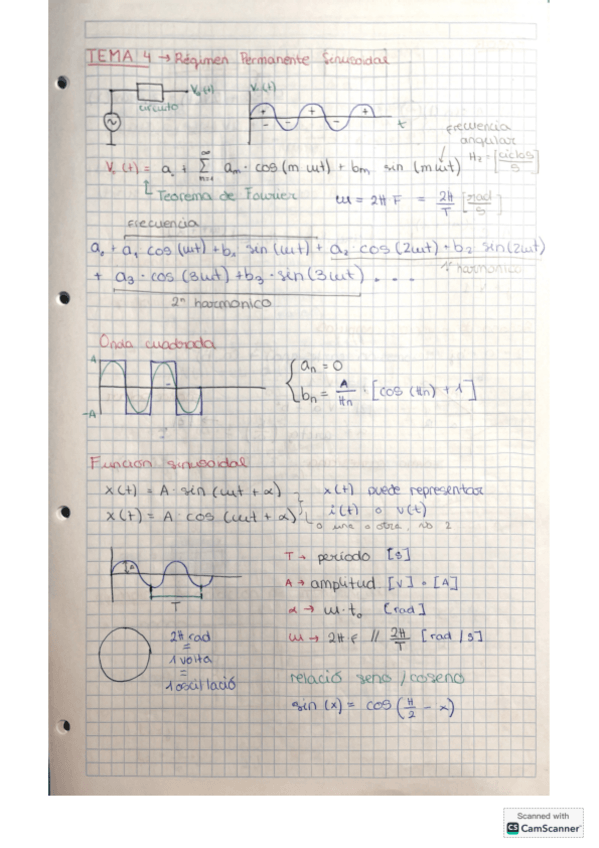 TEMA 4 → Régimen Permanente Sinusoidal
V₀(t)
V(t)
circuito
t
frecuencia
angular
Hz = [ciclos/s]
V₀(t) = a₀ + Σ aₘ · cos (m ωt) + bₘ sin (m ωt)
n=1
∞
↳ Teorema de Fourier
ω = 2π F = 2π/T [rad/s]
frecuencia
a₀ + a₁ cos (ωt) + b₁ sin (ωt) + a₂ · cos (2ωt) + b₂ sin(2ωt)
1º harmonico
+ a₃ · cos (3ωt) + b₃ · sin (3ωt) . . .
2º harmonico
Onda cuadrada
A
-A
aₙ = 0
bₙ = A/πn · [cos (πn) + 1]
Función sinusoidal
x(t) = A · sin (ωt + α)
x(t) = A · cos (ωt + α)
x(t) puede representar
i(t) o v(t)
o una o otra, no 2
A
T
T → período [s]
A → amplitud [V] o [A]
α → ω·t₀ [rad]
ω → 2π f // 2π/T [rad/s]
2π rad
=
1 volta
=
1 oscil·lació
relació seno / coseno
sin (x) = cos (π/2 - x)
Scanned with
CS CamScanner